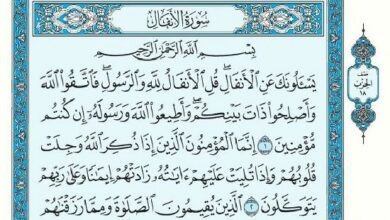 سُورَةُ الأَنفَالِ
بِسْمِ اللَّهِ الرَّحْمَٰنِ الرَّحِيمِ
يَسْـَٔلُونَكَ عَنِ ٱلْأَنفَالِ ۖ قُلِ ٱلْأَنفَالُ لِلَّهِ وَٱلرَّسُولِ ۖ فَٱتَّقُوا۟ ٱللَّهَ
وَأَصْلِحُوا۟ ذَاتَ بَيْنِكُمْ ۖ وَأَطِيعُوا۟ ٱللَّهَ وَرَسُولَهُۥٓ إِن كُنتُم
مُّؤْمِنِينَ ١ إِنَّمَا ٱلْمُؤْمِنُونَ ٱلَّذِينَ إِذَا ذُكِرَ ٱللَّهُ وَجِلَتْ
قُلُوبُهُمْ وَإِذَا تُلِيَتْ عَلَيْهِمْ ءَايَـٰتُهُۥ زَادَتْهُمْ إِيمَـٰنًا وَعَلَىٰ رَبِّهِمْ
يَتَوَكَّلُونَ ٢ ٱلَّذِينَ يُقِيمُونَ ٱلصَّلَوٰةَ وَمِمَّا رَزَقْنَـٰهُمْ
الحزب
١٨